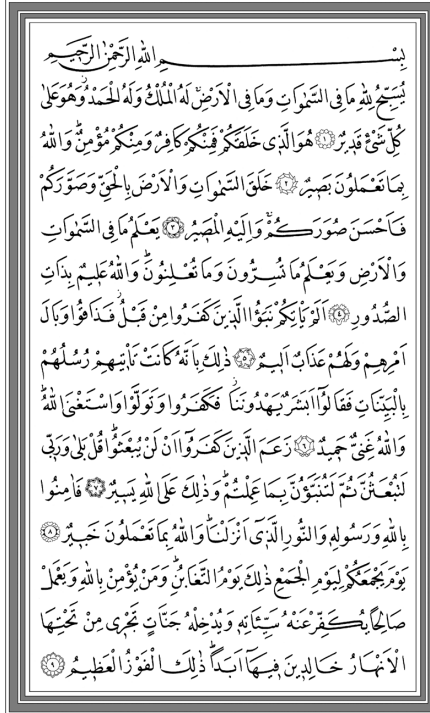 بِسْمِ اللّٰهِ الرَّحْمٰنِ الرَّحِيمِ
يُسَبِّحُ لِلّٰهِ مَا فِي السَّمٰوَاتِ وَمَا فِي الْاَرْضِۚ لَهُ الْمُلْكُ وَلَهُ الْحَمْدُۘ وَهُوَ عَلٰى
كُلِّ شَيْءٍ قَدِيرٌ ﴿١﴾ هُوَ الَّذِي خَلَقَكُمْ فَمِنْكُمْ كَافِرٌ وَمِنْكُمْ مُؤْمِنٌۜ وَاللّٰهُ
بِمَا تَعْمَلُونَ بَصِيرٌ ﴿٢﴾ خَلَقَ السَّمٰوَاتِ وَالْاَرْضَ بِالْحَقِّ وَصَوَّرَكُمْ
فَاَحْسَنَ صُوَرَكُمْۚ وَاِلَيْهِ الْمَصِيرُ ﴿٣﴾ يَعْلَمُ مَا فِي السَّمٰوَاتِ
وَالْاَرْضِ وَيَعْلَمُ مَا تُسِرُّونَ وَمَا تُعْلِنُونَۜ وَاللّٰهُ عَلِيمٌ بِذَاتِ
الصُّدُورِ ﴿٤﴾ اَلَمْ يَأْتِكُمْ نَبَؤُا الَّذِينَ كَفَرُوا مِنْ قَبْلُۘ فَذَاقُوا وَبَالَ
اَمْرِهِمْ وَلَهُمْ عَذَابٌ اَلِيمٌ ﴿٥﴾ ذٰلِكَ بِاَنَّهُ كَانَتْ تَأْتِيهِمْ رُسُلُهُمْ
بِالْبَيِّنَاتِ فَقَالُٓوا اَبَشَرٌ يَهْدُونَنَاۘ فَكَفَرُوا وَتَوَلَّوْا وَاسْتَغْنَى اللّٰهُۜ
وَاللّٰهُ غَنِيٌّ حَمِيدٌ ﴿٦﴾ زَعَمَ الَّذِينَ كَفَرُٓوا اَنْ لَنْ يُبْعَثُواۜ قُلْ بَلٰى وَرَبِّي
لَتُبْعَثُنَّ ثُمَّ لَتُنَبَّؤُنَّ بِمَا عَمِلْتُمْۜ وَذٰلِكَ عَلَى اللّٰهِ يَسِيرٌ ﴿٧﴾ فَاٰمِنُوا
بِاللّٰهِ وَرَسُولِهِ وَالنُّورِ الَّذِٓي اَنْزَلْنَاۜ وَاللّٰهُ بِمَا تَعْمَلُونَ خَبِيرٌ ﴿٨﴾
يَوْمَ يَجْمَعُكُمْ لِيَوْمِ الْجَمْعِ ذٰلِكَ يَوْمُ التَّغَابُنِۜ وَمَنْ يُؤْمِنْ بِاللّٰهِ وَيَعْمَلْ
صَالِحًا يُكَفِّرْ عَنْهُ سَيِّـَٔاتِهِ وَيُدْخِلْهُ جَنَّاتٍ تَجْرِي مِنْ تَحْتِهَا
الْاَنْهَارُ خَالِدِينَ فِيهَٓا اَبَدًاۜ ذٰلِكَ الْفَوْزُ الْعَظِيمُ ﴿٩﴾